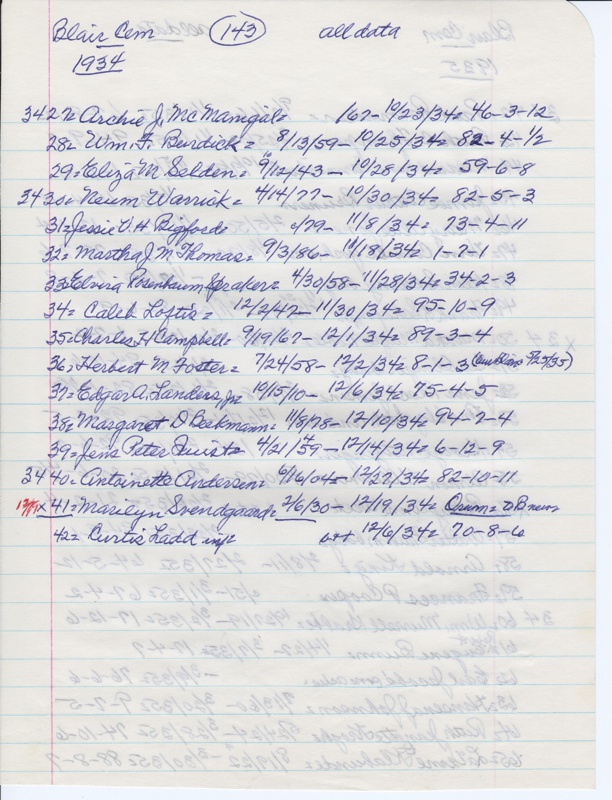 Blair Cem (143) all data
1934
3427= Archie J. McManigal= /67- 10/23/34= 46-3-12
28= Wm. F. Burdick= 8/13/59- 10/25/34= 82-4-1/2
29= Eliza M. Selden= 9/12/43- 10/28/34= 59-6-8
3430= Neum Warrick= 4/14/77- 10/30/34= 82-5-3
31= Jessie V. H Bigford= c/79- 11/8/34= 73-4-11
32= Martha J. M Thomas= 9/3/86- 11/18/34= 1-7-1
33= Elvira Rosenbaum Spraker= 4/30/58- 11/28/34= 34-2-3
34= Caleb Loftis= 12/2/47- 11/30/34= 95-10-9
35= Charles H Campbell= 9/19/67- 12/1/34= 89-3-4
36= Herbert M Foster= 7/24/58- 12/2/34= 8-1-3 9/25/35)
37= Edgar A. Landers, jr= 10/15/10- 12/6/34= 75-4-5
38= Margaret D Beekmann= 11/8/78- 12/10/34= 94-7-4
39= Jens Peter Quist= 4/21/59- 12/14/34= 6-12-9
3440= Antoinette Andersen= 6/16/04- 12/27/34= 82-10-11
x 41= Marilyn Svendgaard= 2/6/30- 12/19/34=
42= Curtis Ladd inf= 12/6/34= 70-8-6